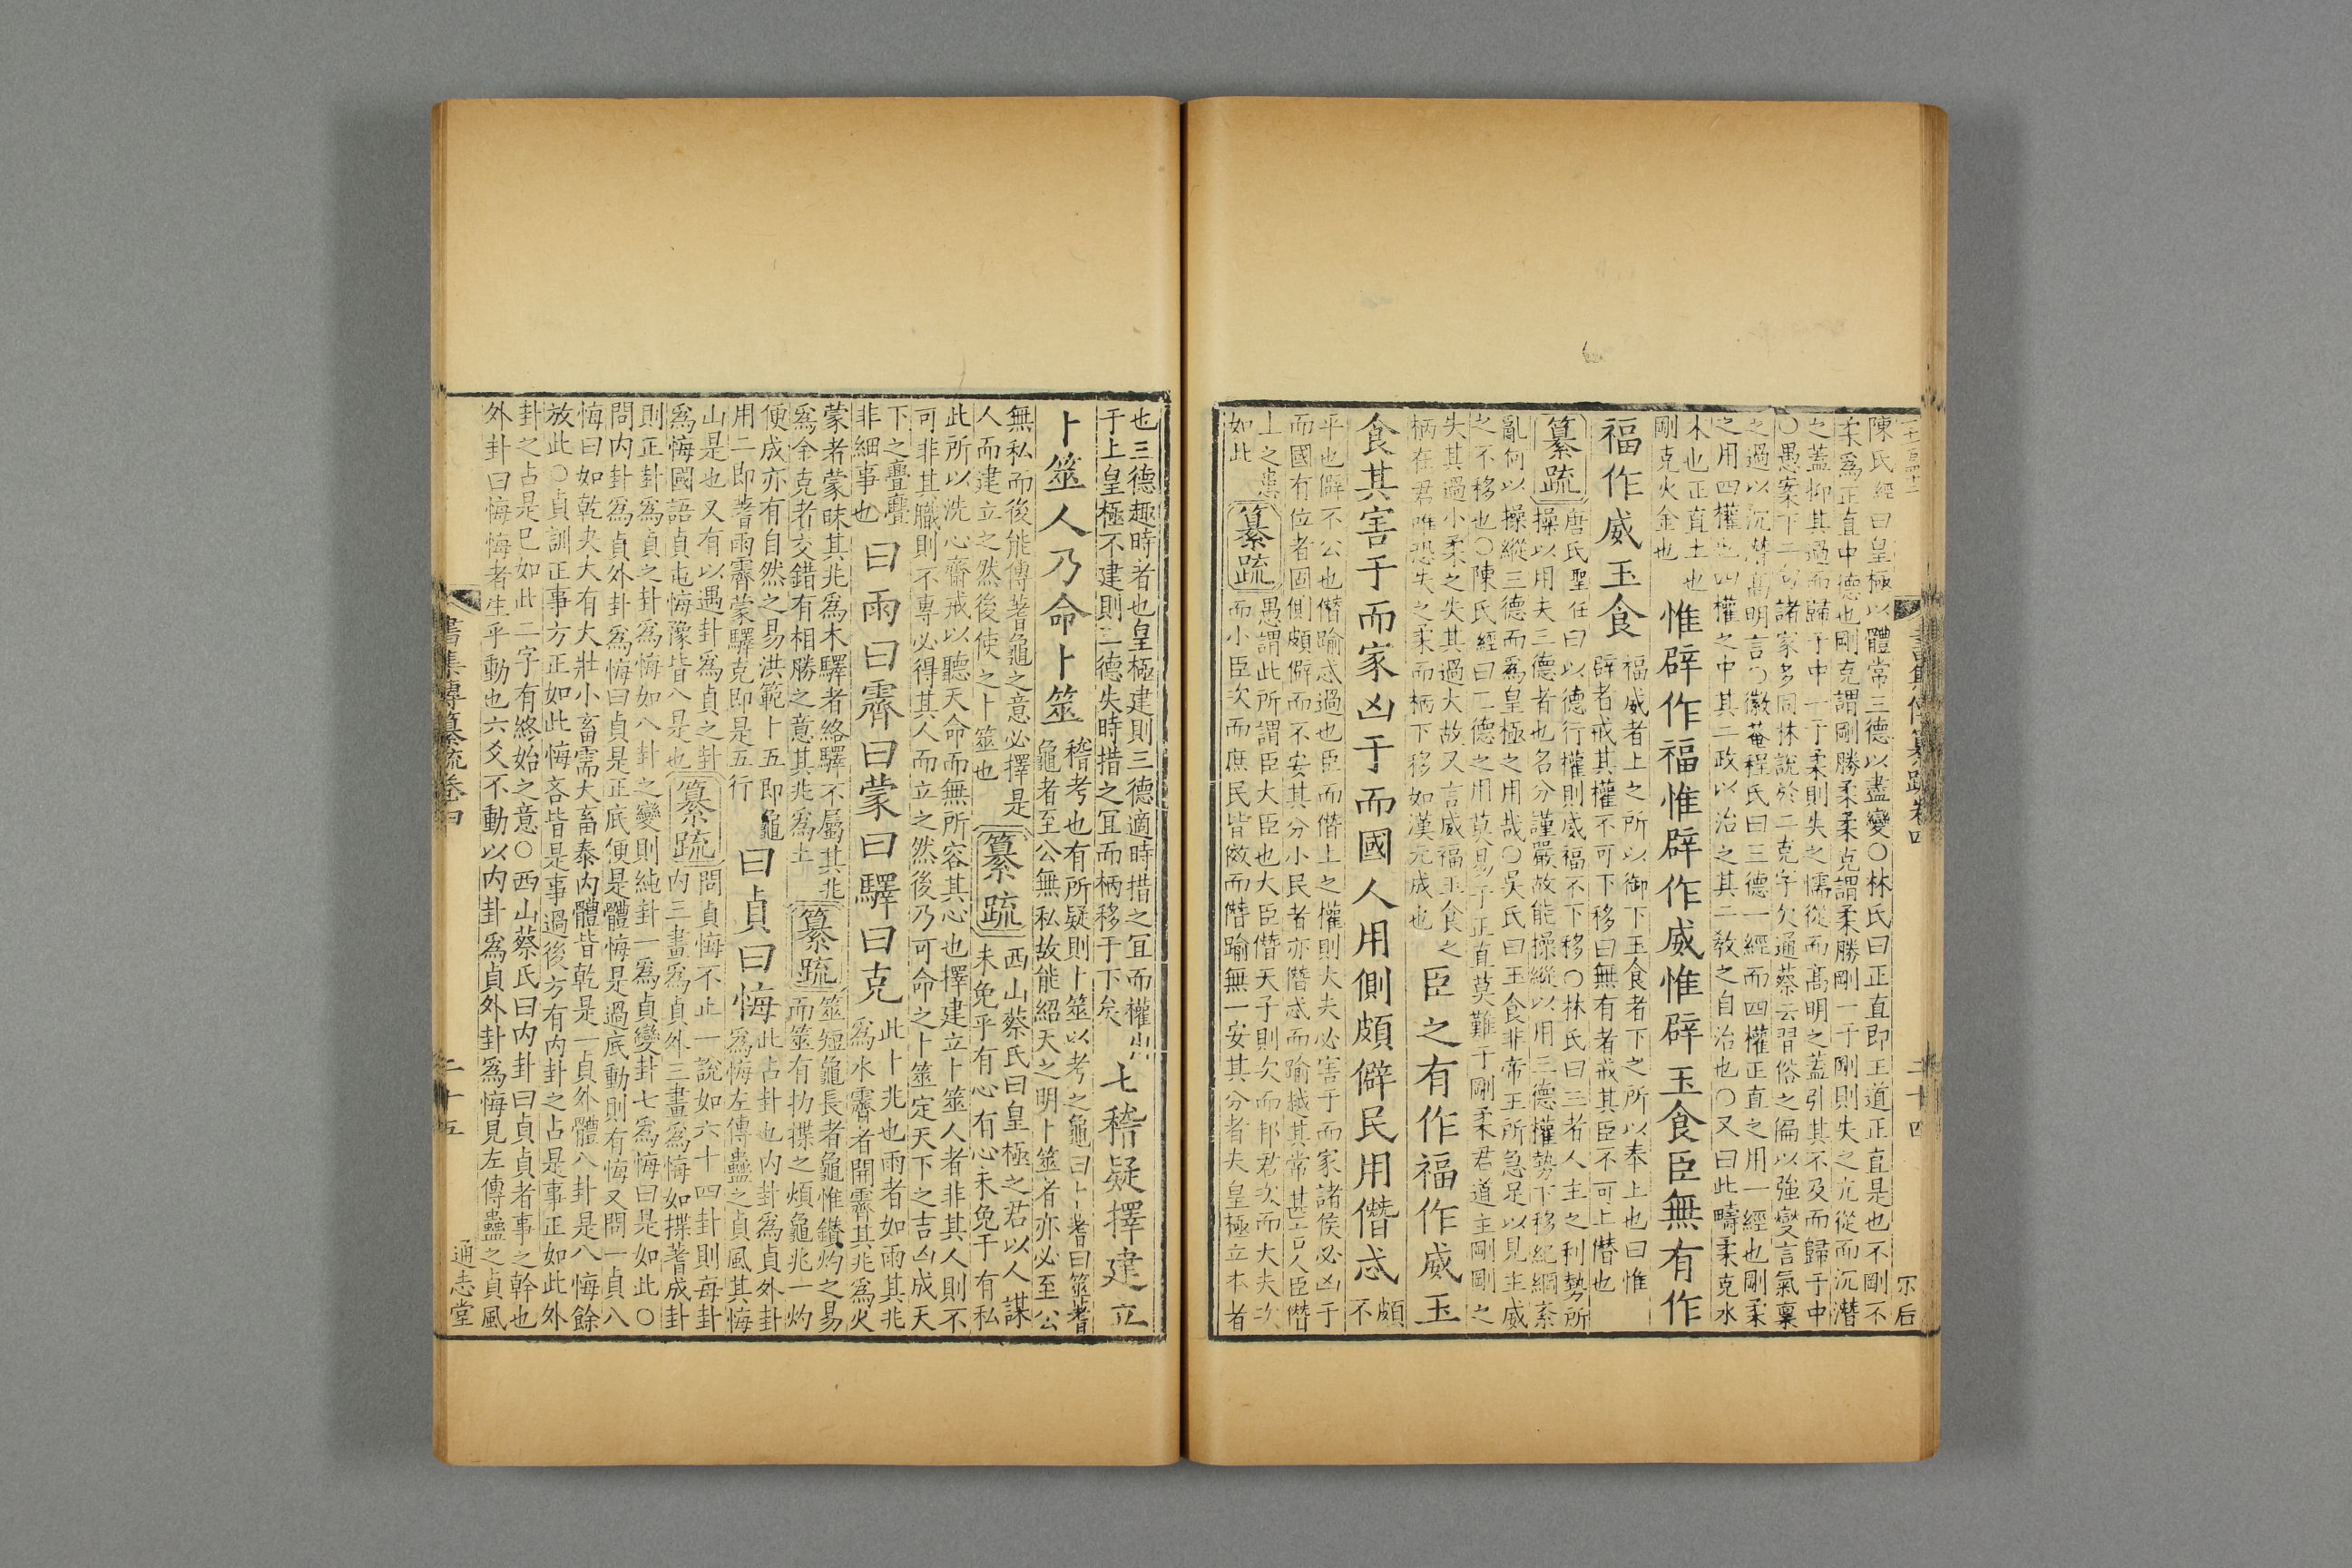 陳氏經曰皇極以體常三德以盡變○林氏曰正直即王道正直是也不剛不
柔爲正直中德也剛克謂剛勝柔柔克謂柔勝剛一于剛則失之亢從而沉潛
之蓋抑其過而歸于中一于柔則失之懦從而高明之蓋引其不及而歸于中
○愚案下二句諸家多同林說於二克字欠通蔡云習俗之偏以強燮言氣稟
之過以沉潛高明言○徽菴程氏曰三德一經而四權正直之用一經也剛柔
之用四權也四權之中其二政以治之其二教之自治也○又曰此疇柔克水
木也正直土也
剛克火金也
惟辟作福惟辟作威惟辟玉食臣無有作
福作威玉食
福威者上之所以御下玉食者下之所以奉上也曰惟
辟者戒其權不可下移曰無有者戒其臣不可上僭也
纂疏
唐氏聖任曰以德行權則威福不下移○林氏曰三者人主之利勢所
操以用夫三德者也名分謹嚴故能操縱以用三德權勢下移紀綱紊
亂何以操縱三德而爲皇極之用哉○吳氏曰玉食非帝王所急足以見主威
之不移也○陳氏經曰二德之用莫易于正直莫難于剛柔君道主剛剛之
失其過小柔之失其過大故又言威福玉食之
柄在君唯恐失之柔而柄下移如漢元成也
臣之有作福作威玉
食其害于而家凶于而國人用側頗僻民用僭忒
頗
不
平也僻不公也僭踰忒過也臣而僭上之權則大夫必害于而家諸侯必凶于
而國有位者固側頗僻而不安其分小民者亦僭忒而踰越其常甚言人臣僭
上之患
如此
纂疏
愚謂此所謂臣大臣也大臣僭天子則次而邦君次而大夫次
而小臣次而庶民皆傚而僭踰無一安其分者夫皇極立本者
書集傳纂疏卷四
二十四
也三德趣時者也皇極建則三德適時措之宜而權出
于上皇極不建則三德失時措之宜而柄移于下矣
七稽疑擇建立
卜筮人乃命卜筮
稽考也有所疑則卜筮以考之龜曰卜蓍曰筮蓍
龜者至公無私故能紹天之明卜筮者亦必至公
無私而後能傳蓍龜之意必擇是
人而建立之然後使之卜筮也
纂疏
西山蔡氏曰皇極之君以人謀
未免乎有心有心未免于有私
此所以洗心齋戒以聽天命而無所容其心也擇建立卜筮人者非其人則不
可非其職則不專必得其人而立之然後乃可命之卜筮定天下之吉凶成天
下之亹亹
非細事也
曰雨曰霽曰蒙曰驛曰克
此卜兆也雨者如雨其兆
爲水霽者開霽其兆爲火
蒙者蒙昧其兆爲木驛者絡驛不屬其兆
爲金克者交錯有相勝之意其兆爲土
纂疏
筮短龜長者龜惟鑽灼之易
而筮有扐揲之煩龜兆一灼
便成亦有自然之易洪範卜五即龜
用二即蓍雨霽蒙驛克即是五行
曰貞曰悔
此占卦也内卦爲貞外卦
爲悔左傳蠱之貞風其悔
山是也又有以遇卦爲貞之卦
爲悔國語貞屯悔豫皆八是也
纂疏
問貞悔不止一說如六十四卦則每卦
内三畫爲貞外三畫爲悔如揲蓍成卦
則正卦爲貞之卦爲悔如八卦之變則純卦一爲貞變卦七爲悔曰是如此○
問内卦爲貞外卦爲悔曰貞是正底便是體悔是過底動則有悔又問一貞八
悔曰如乾夬大有大壯小畜需大畜泰内體皆乾是一貞外體八卦是八悔餘
放此○貞訓正事方正如此悔吝皆是事過後方有内卦之占是事正如此外
卦之占是已如此二字有終始之意○西山蔡氏曰内卦曰貞貞者事之幹也
外卦曰悔悔者生乎動也六爻不動以内卦爲貞外卦爲悔見左傳蠱之貞風
書集傳纂疏卷四
二十五
通志堂